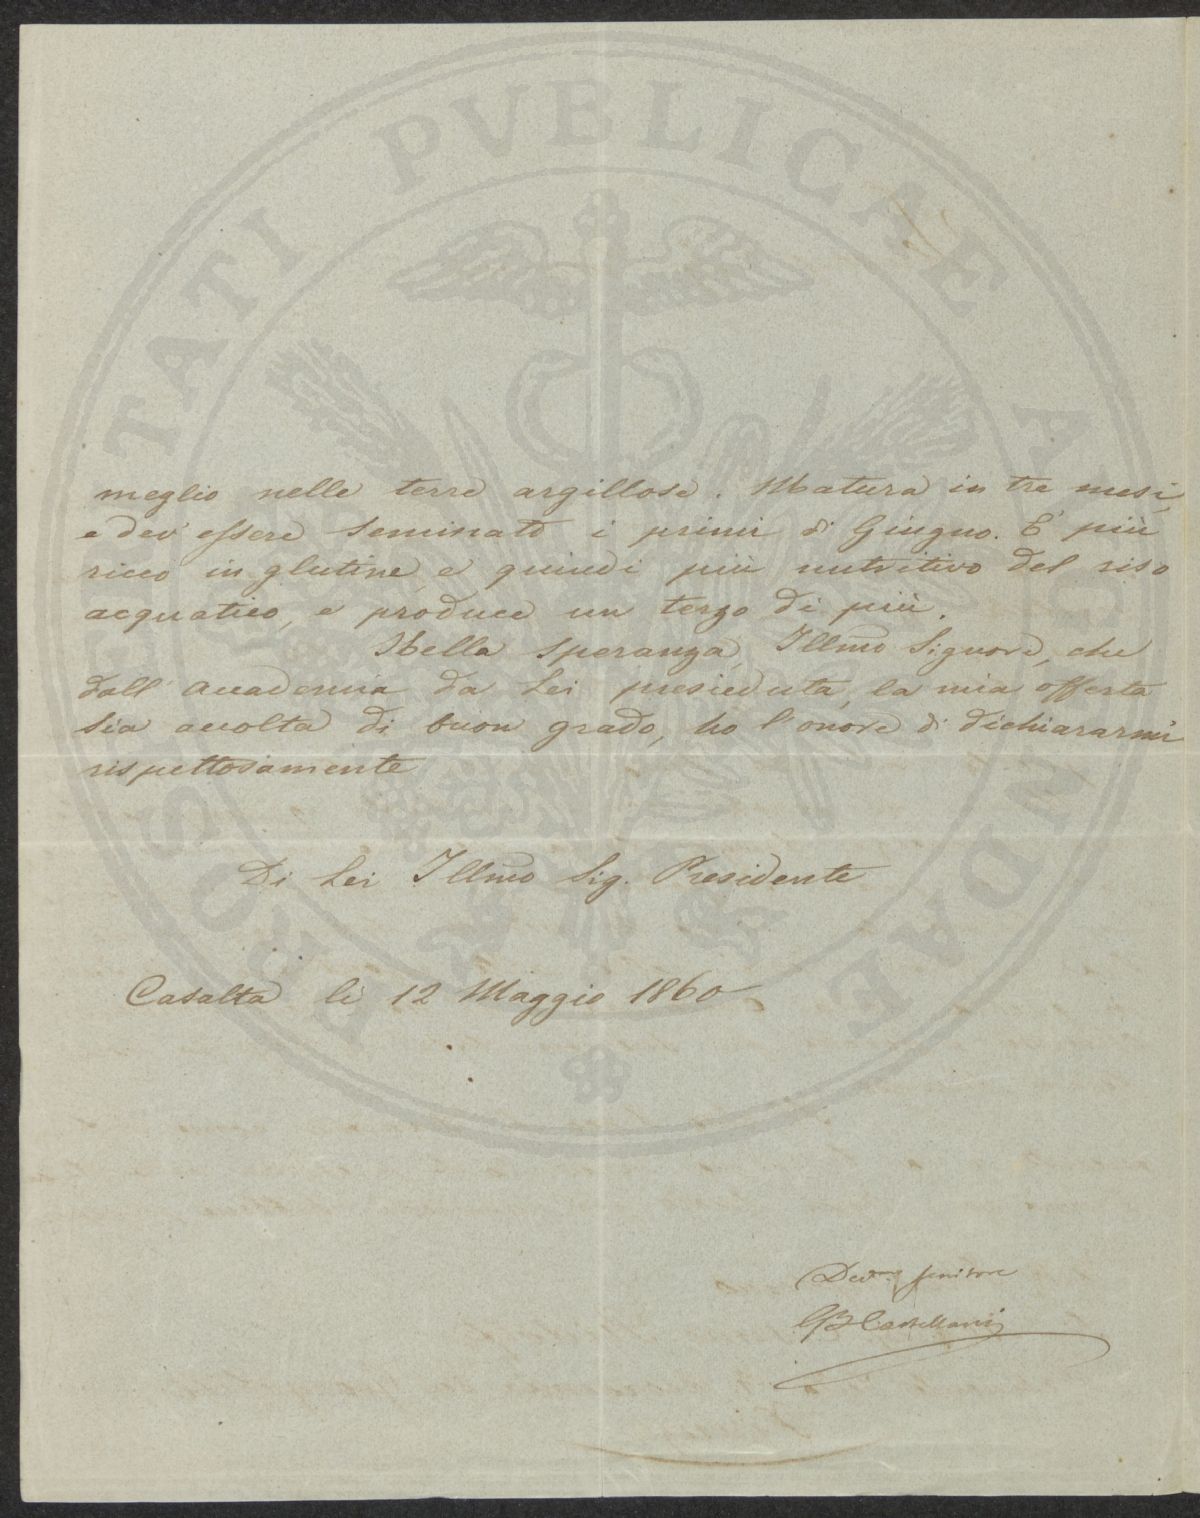 PROSPERITATI PVBLICAE AVGENDAE
meglio nelle terre argillose. Matura in tre mesi,
e dev' essere seminato i primi di Giugno. E' più
ricco in glutine e quindi più nutritivo del riso
acquatico, e produce un terzo di più.
Nella speranza, Illmo Signore, che
dall' Accademia da Lei presieduta, la mia offerta
sia accolta di buon grado, ho l'onore di dichiararmi
rispettosamente
Di Lei Illmo Sig. Presidente
Casalta li 12 Maggio 1860
Devmo servitore
GB Castellani